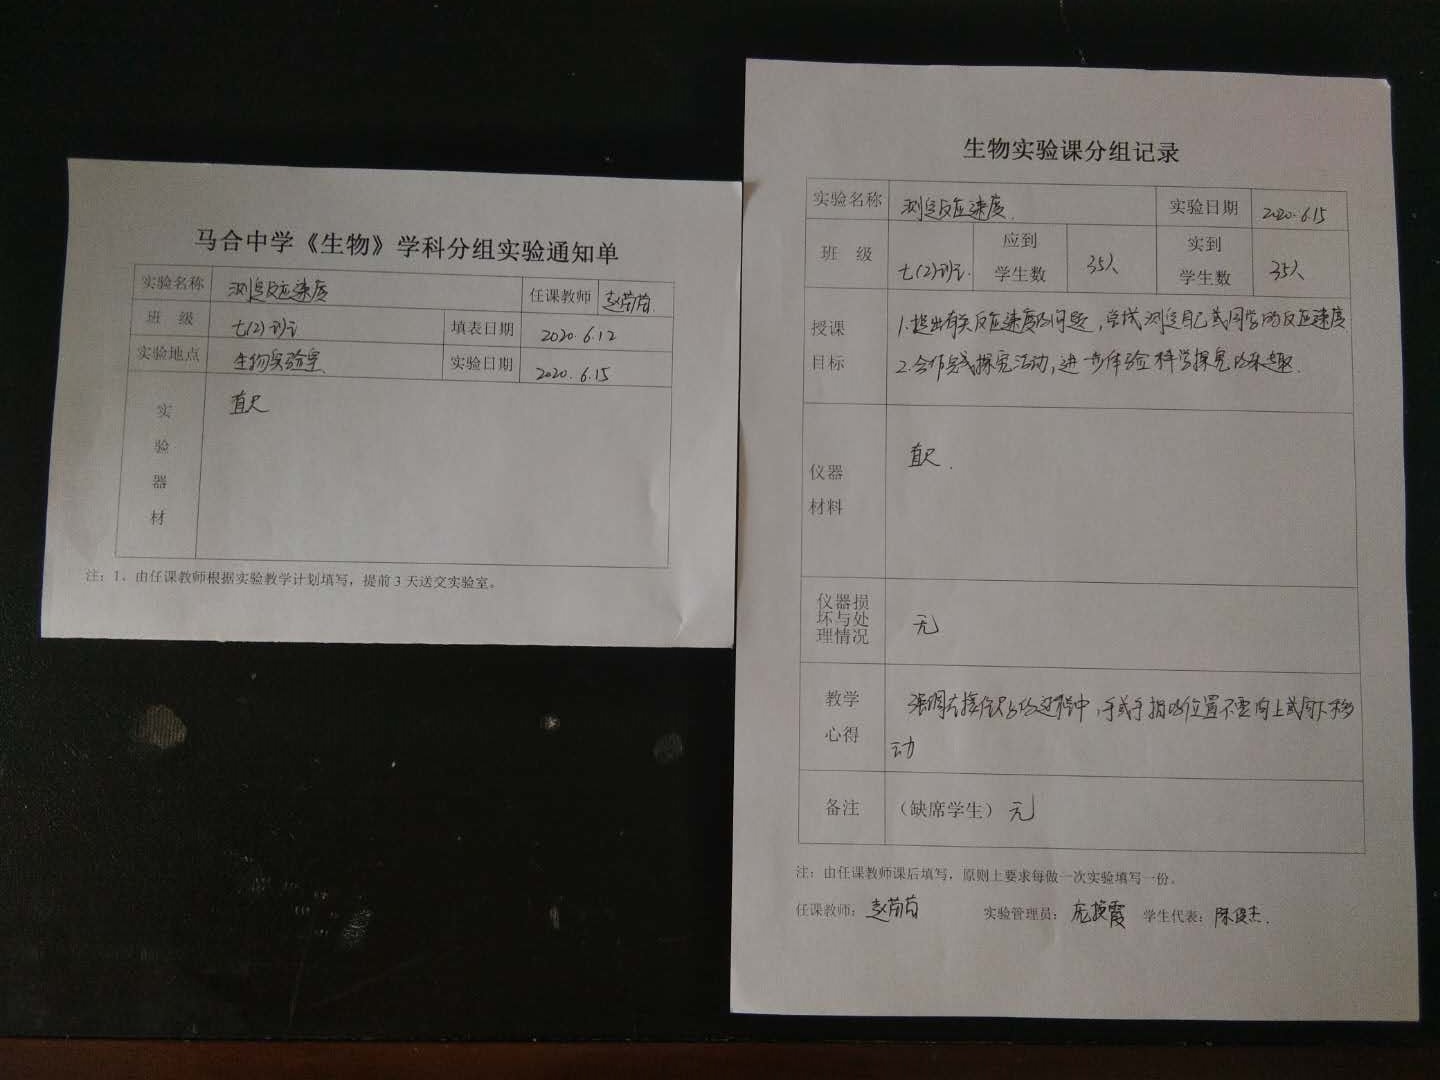 马合中学《生物》学科分组实验通知单
实验名称 测定反应速度 任课教师 赵茜茜
班 级 七(2)班 填表日期 2020.6.12
实验地点 生物实验室 实验日期 2020.6.15
实验器材 直尺
注：1、由任课教师根据实验教学计划填写，提前3天送交实验室。
生物实验课分组记录
实验名称 测定反应速度. 实验日期 2020.6.15
班 级 七(2)班. 应到学生数 35人 实到学生数 35人
授课目标 1.提出有关反应速度的问题，尝试测定自己或同学的反应速度
2.合作完成探究活动，进一步体验科学探究的乐趣.
仪器材料 直尺.
仪器损坏与处理情况 无
教学心得 强调在接住尺子的过程中，手或手指的位置不要向上或向下移
动
备注 （缺席学生）无
注：由任课教师课后填写，原则上要求每做一次实验填写一份。
任课教师：赵茜茜 实验管理员： 学生代表：陈俊杰.